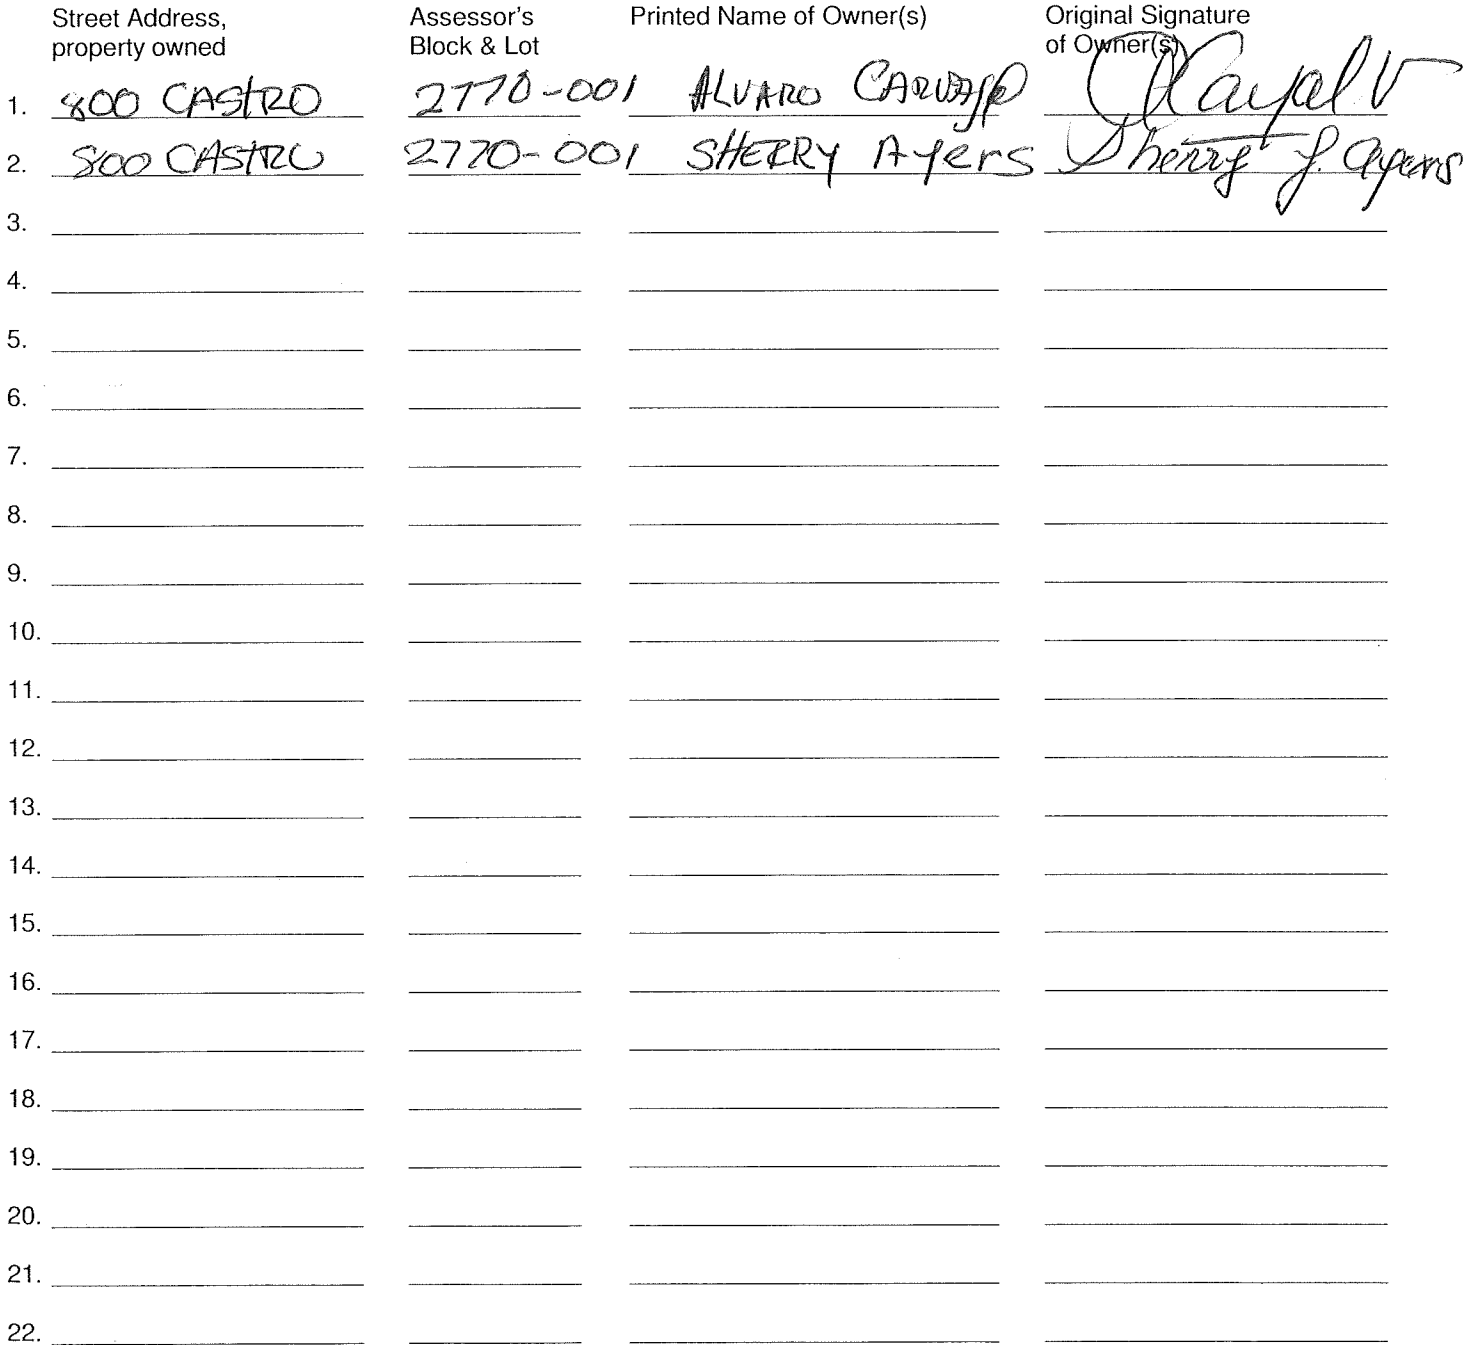 Street Address, property owned Assessor's Block & Lot Printed Name of Owner(s) Original Signature of Owner(s)
1. 800 CASTRO 2770-001 ALVARO CARVAJAL
2. 800 CASTRO 2770-001 SHERRY Ayers Sherry J. Ayers
3.
4.
5.
6.
7.
8.
9.
10.
11.
12.
13.
14.
15.
16.
17.
18.
19.
20.
21.
22.